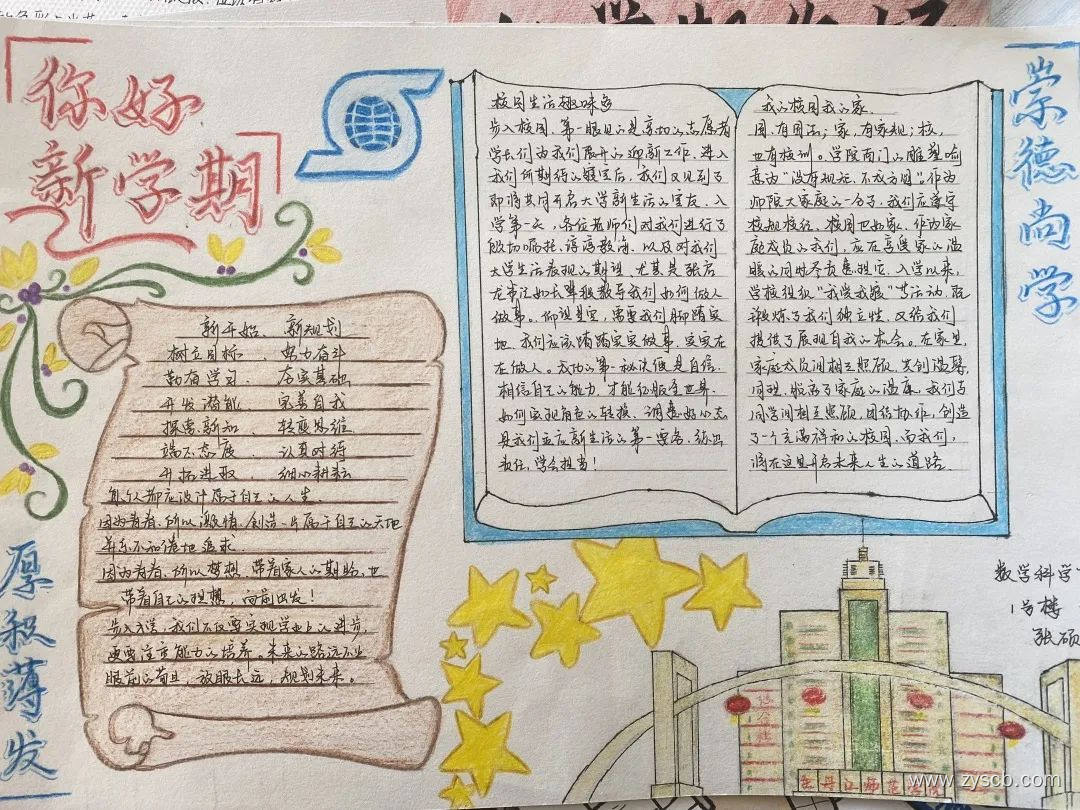 你好
新学期
新开始 新规划
树立目标 努力奋斗
勤奋学习 夯实基础
开发潜能 完善自我
探索新知 转变思维
端正态度 认真对待
开拓进取 细心耕耘
每个人都应设计属于自己的人生.
因为青春,所以激情,创造一片属于自己的天地
并永不知倦地追求.
因为青春,所以梦想,带着家人的期盼,也
带着自己的理想,向前出发!
步入大学,我们不仅要实现学业上的进步,
更要注重能力的培养。未来的路远不止
眼前的苟且,放眼长远,规划未来。
厚积薄发
校园生活趣味多
步入校园,第一眼见的是亲切的志愿者
学长们为我们展开的迎新工作,进入
我们所期待的寝室后,我们又见到了
即将共同开启大学新生活的室友,入
学第一天,各位老师们对我们进行了
殷切嘱托,谆谆教诲,以及对我们
大学生活表现的期望,尤其是张启
龙书记如长辈般教导我们如何做人
做事。仰望星空,需要我们脚踏实
地,我们应该踏踏实实做事,实实在
在做人。成功的第一秘诀便是自信,
相信自己的能力,才能征服全世界,
如何实现角色的转换,调整好心态
是我们适应新生活的第一要务,练出
责任,学会担当!
我的校园我的家
国,有国法;家,有家规;校,
也有校训。学院南门的雕塑喻
意为“没有规矩,不成方圆”,作为
师院大家庭的一份子,我们应遵守
校规校纪,校园也如家,作为家
庭成员的我们,应在享受家的温
暖的同时尽责惠独立,入学以来,
学校组织“我爱我寝”等活动,既
锻炼了我们独立性,又给我们
提供了展现自我的机会。在家里,
家庭成员间相互照顾,共创温馨,
同理,寝室有家庭的温度,我们与
同学间相互照顾,团结协作,创造
了一个充满祥和的校园,而我们,
将在这里开启未来人生的道路.
崇德尚学
数学科学
1号楼
张硕
牡丹江师范学院
www.zyscb.com